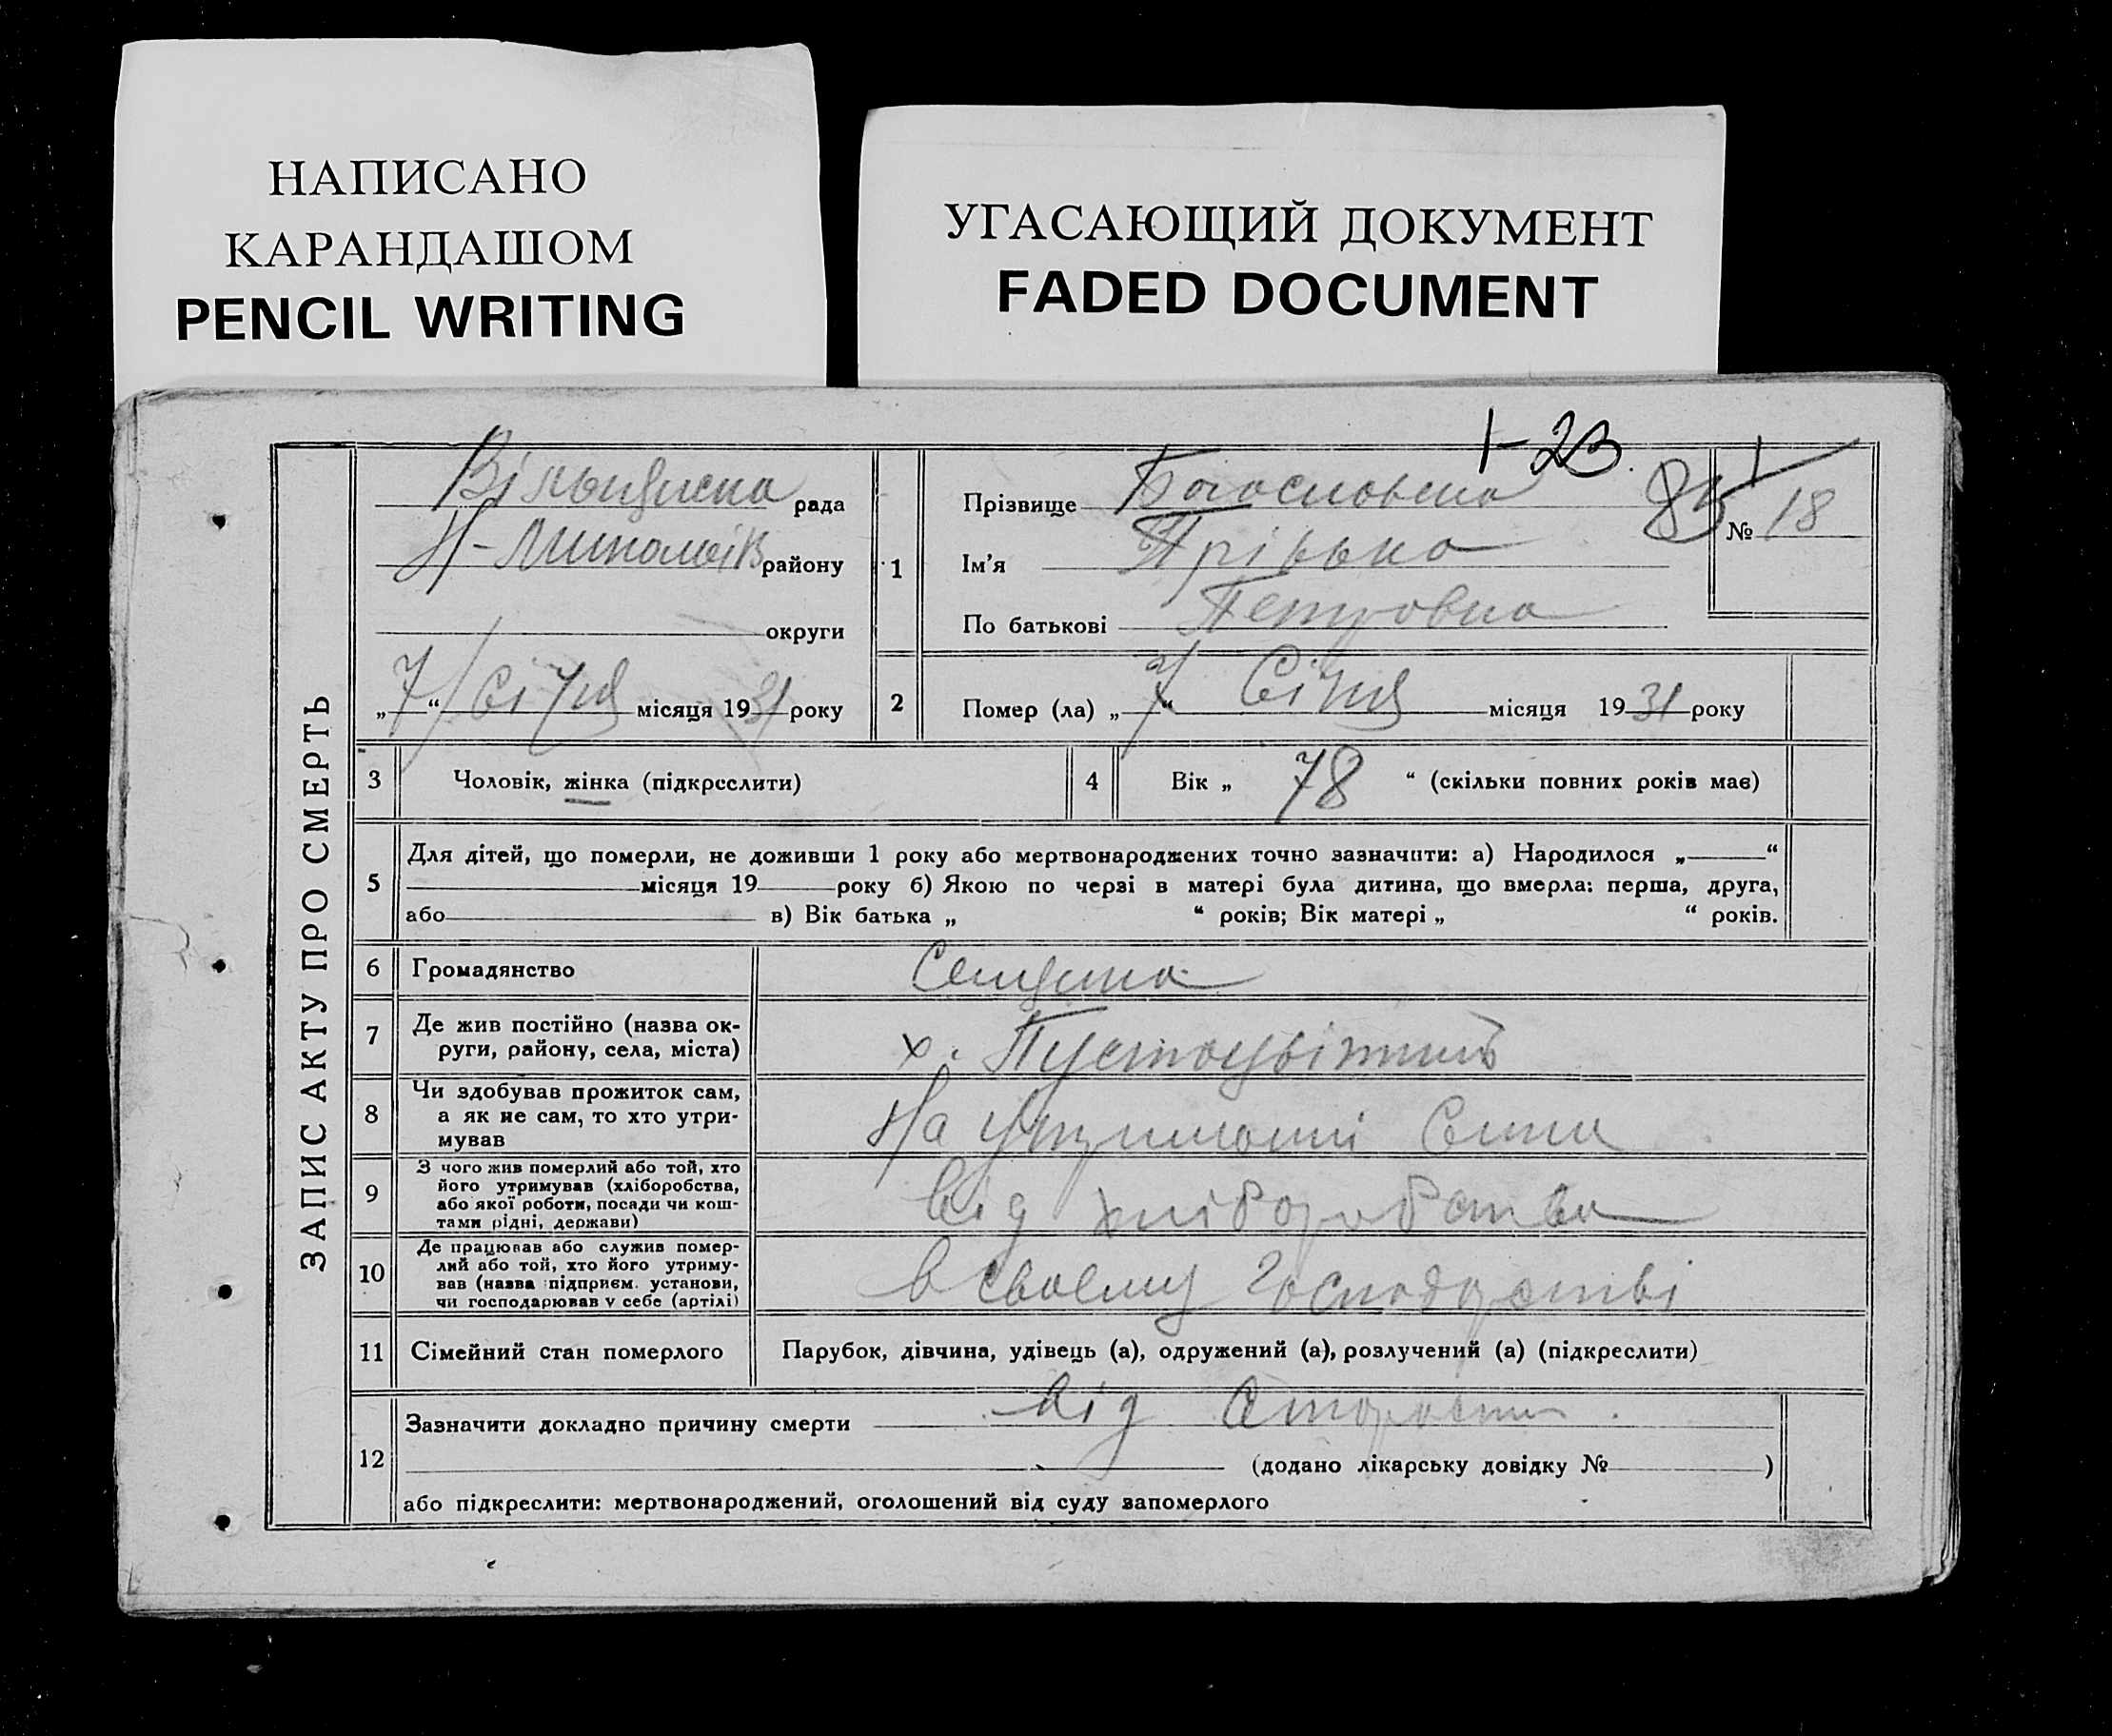 НАПИСАНО
КАРАНДАШОМ
PENCIL WRITING
УГАСАЮЩИЙ ДОКУМЕНТ
FADED DOCUMENT
1-23
85
№ 18
ЗАПИС АКТУ ПРО СМЕРТЬ
рада
району
округи
„7“ Січня місяця 1931 року
1
Прізвище
Ім'я
По батькові Петровна
2
Помер (ла) „7“ Січня місяця 1931 року
3 Чоловік, жінка (підкреслити)
4 Вік „ 78 “ (скільки повних років має)
5
Для дітей, що померли, не доживши 1 року або мертвонароджених точно зазначити: а) Народилося „ “
місяця 19 року б) Якою по черзі в матері була дитина, що вмерла: перша, друга,
або в) Вік батька „ “ років; Вік матері „ “ років.
6 Громадянство
7 Де жив постійно (назва ок-
руги, району, села, міста)
х.
8 Чи здобував прожиток сам,
а як не сам, то хто утри-
мував
На утриманні Сина
9 З чого жив померлий або той, хто
його утримував (хліборобства,
або якої роботи, посади чи кош-
тами рідні, держави)
від хліборобства
10 Де працював або служив помер-
лий або той, хто його утриму-
вав (назва підприєм. установи,
чи господарював у себе (артілі)
в своєму господарстві
11 Сімейний стан померлого
Парубок, дівчина, удівець (а), одружений (а), розлучений (а) (підкреслити)
12
Зазначити докладно причину смерти від старости.
(додано лікарську довідку № )
або підкреслити: мертвонароджений, оголошений від суду запомерлого